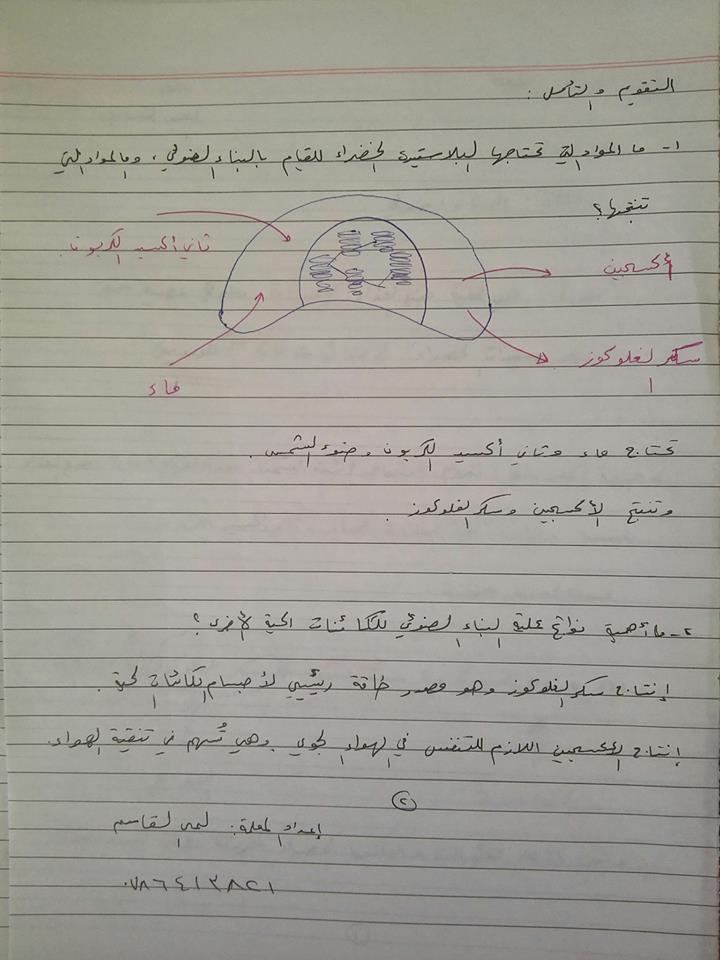 التقويم والتأمل :
١- ما المواد التي تحتاجها البلاستيدة الخضراء للقيام بالبناء الضوئي ، وما المواد التي
تنتجها ؟
ثاني أكسيد الكربون
أكسجين
ماء
سكر الغلوكوز
تحتاج ماء وثاني أكسيد الكربون وضوء الشمس .
وتنتج الأكسجين وسكر الغلوكوز .
٢- ما أهمية نواتج عملية البناء الضوئي للكائنات الحية الأخرى ؟
إنتاج سكر الغلوكوز وهو مصدر طاقة رئيسي لأجسام الكائنات الحية .
إنتاج الأكسجين اللازم للتنفس في الهواء الجوي . وهي تُسهم في تنقية الهواء .
٢
إعداد المعلمة : لمى القاسم
٠٧٨٦٤١٣٨٢١